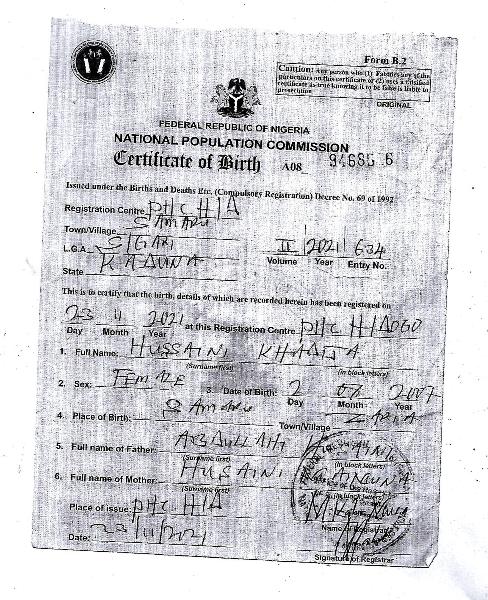 Form B.2
Caution: Any person who (1) Falsifies any of the
particulars on this certificate or (2) uses a falsified
certificate as true knowing it to be false is liable to
prosecution
ORIGINAL
FEDERAL REPUBLIC OF NIGERIA
NATIONAL POPULATION COMMISSION
Certificate of Birth A08 946856
Issued under the Births and Deaths Etc. (Compulsory Registration) Decree No. 69 of 1992
Registration Centre PHC HIA
Town/Village SAMARU
L.G.A. S/GARI II 2021 634
Volume Year Entry No.
State KADUNA
This is to certify that the birth, details of which are recorded herein has been registered on
23 11 2021 at this Registration Centre PHC
Day Month Year
1. Full Name: HUSSAINI KHADIJA
(Surname first) (in block letters)
2. Sex: FEMALE 3. Date of Birth: 2 07 2007
Day Month Year
4. Place of Birth: SAMARU Town/Village ZARIA
5. Full name of Father: ABDULLAHI
(Surname first) (in block letters)
6. Full name of Mother: HUSAINI
(Surname first) (in block letters)
Place of issue: PHC HIA
Name of Registrar
Date: 23/11/2021
Signature of Registrar